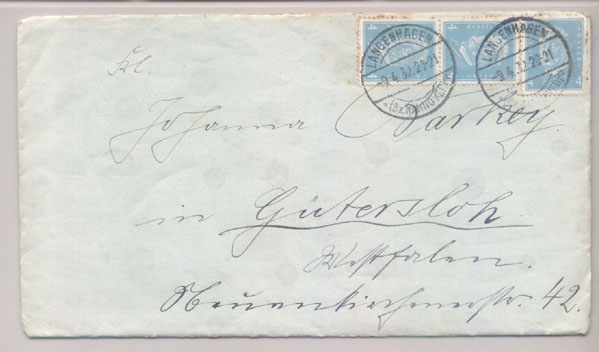 LANGENHAGEN
(BZ. HANNOVER)
LANGENHAGEN
4
4
4
Frl.
Johanna Barkey
in Gütersloh
Westfalen.
Neuenkirchenerstr. 42.